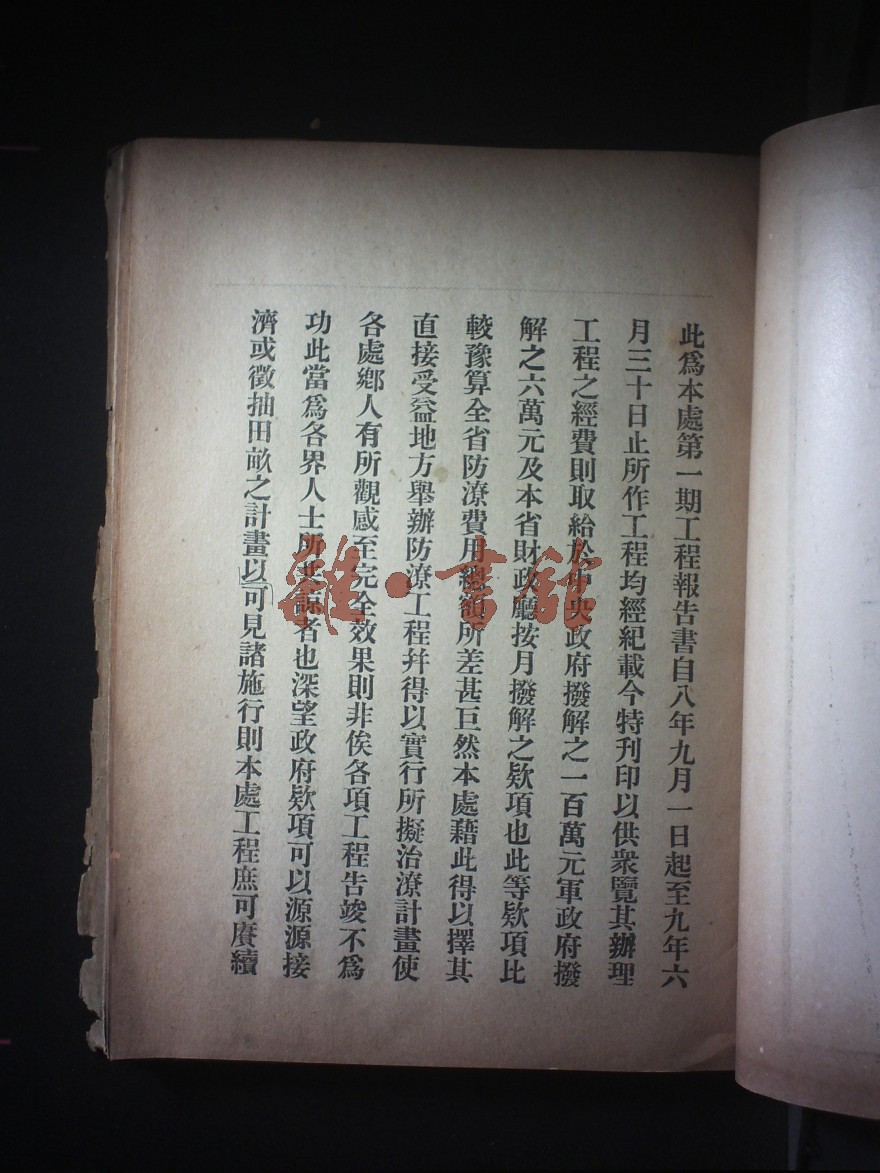 此爲本處第一期工程報告書自八年九月一日起至九年六
月三十日止所作工程均經紀載今特刊印以供衆覽其辦理
工程之經費則取給於中央政府撥解之一百萬元軍政府撥
解之六萬元及本省財政廳按月撥解之欵項也此等欵項比
較豫算全省防潦費用總額所差甚巨然本處藉此得以擇其
直接受益地方舉辦防潦工程幷得以實行所擬治潦計畫使
各處鄉人有所觀感至完全效果則非俟各項工程告竣不爲
功此當爲各界人士所共諒者也深望政府欵項可以源源接
濟或徵抽田畝之計畫以可見諸施行則本處工程庶可賡續
雜·書館